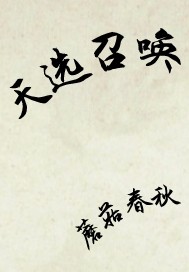 天选召唤
蘑菇春秋